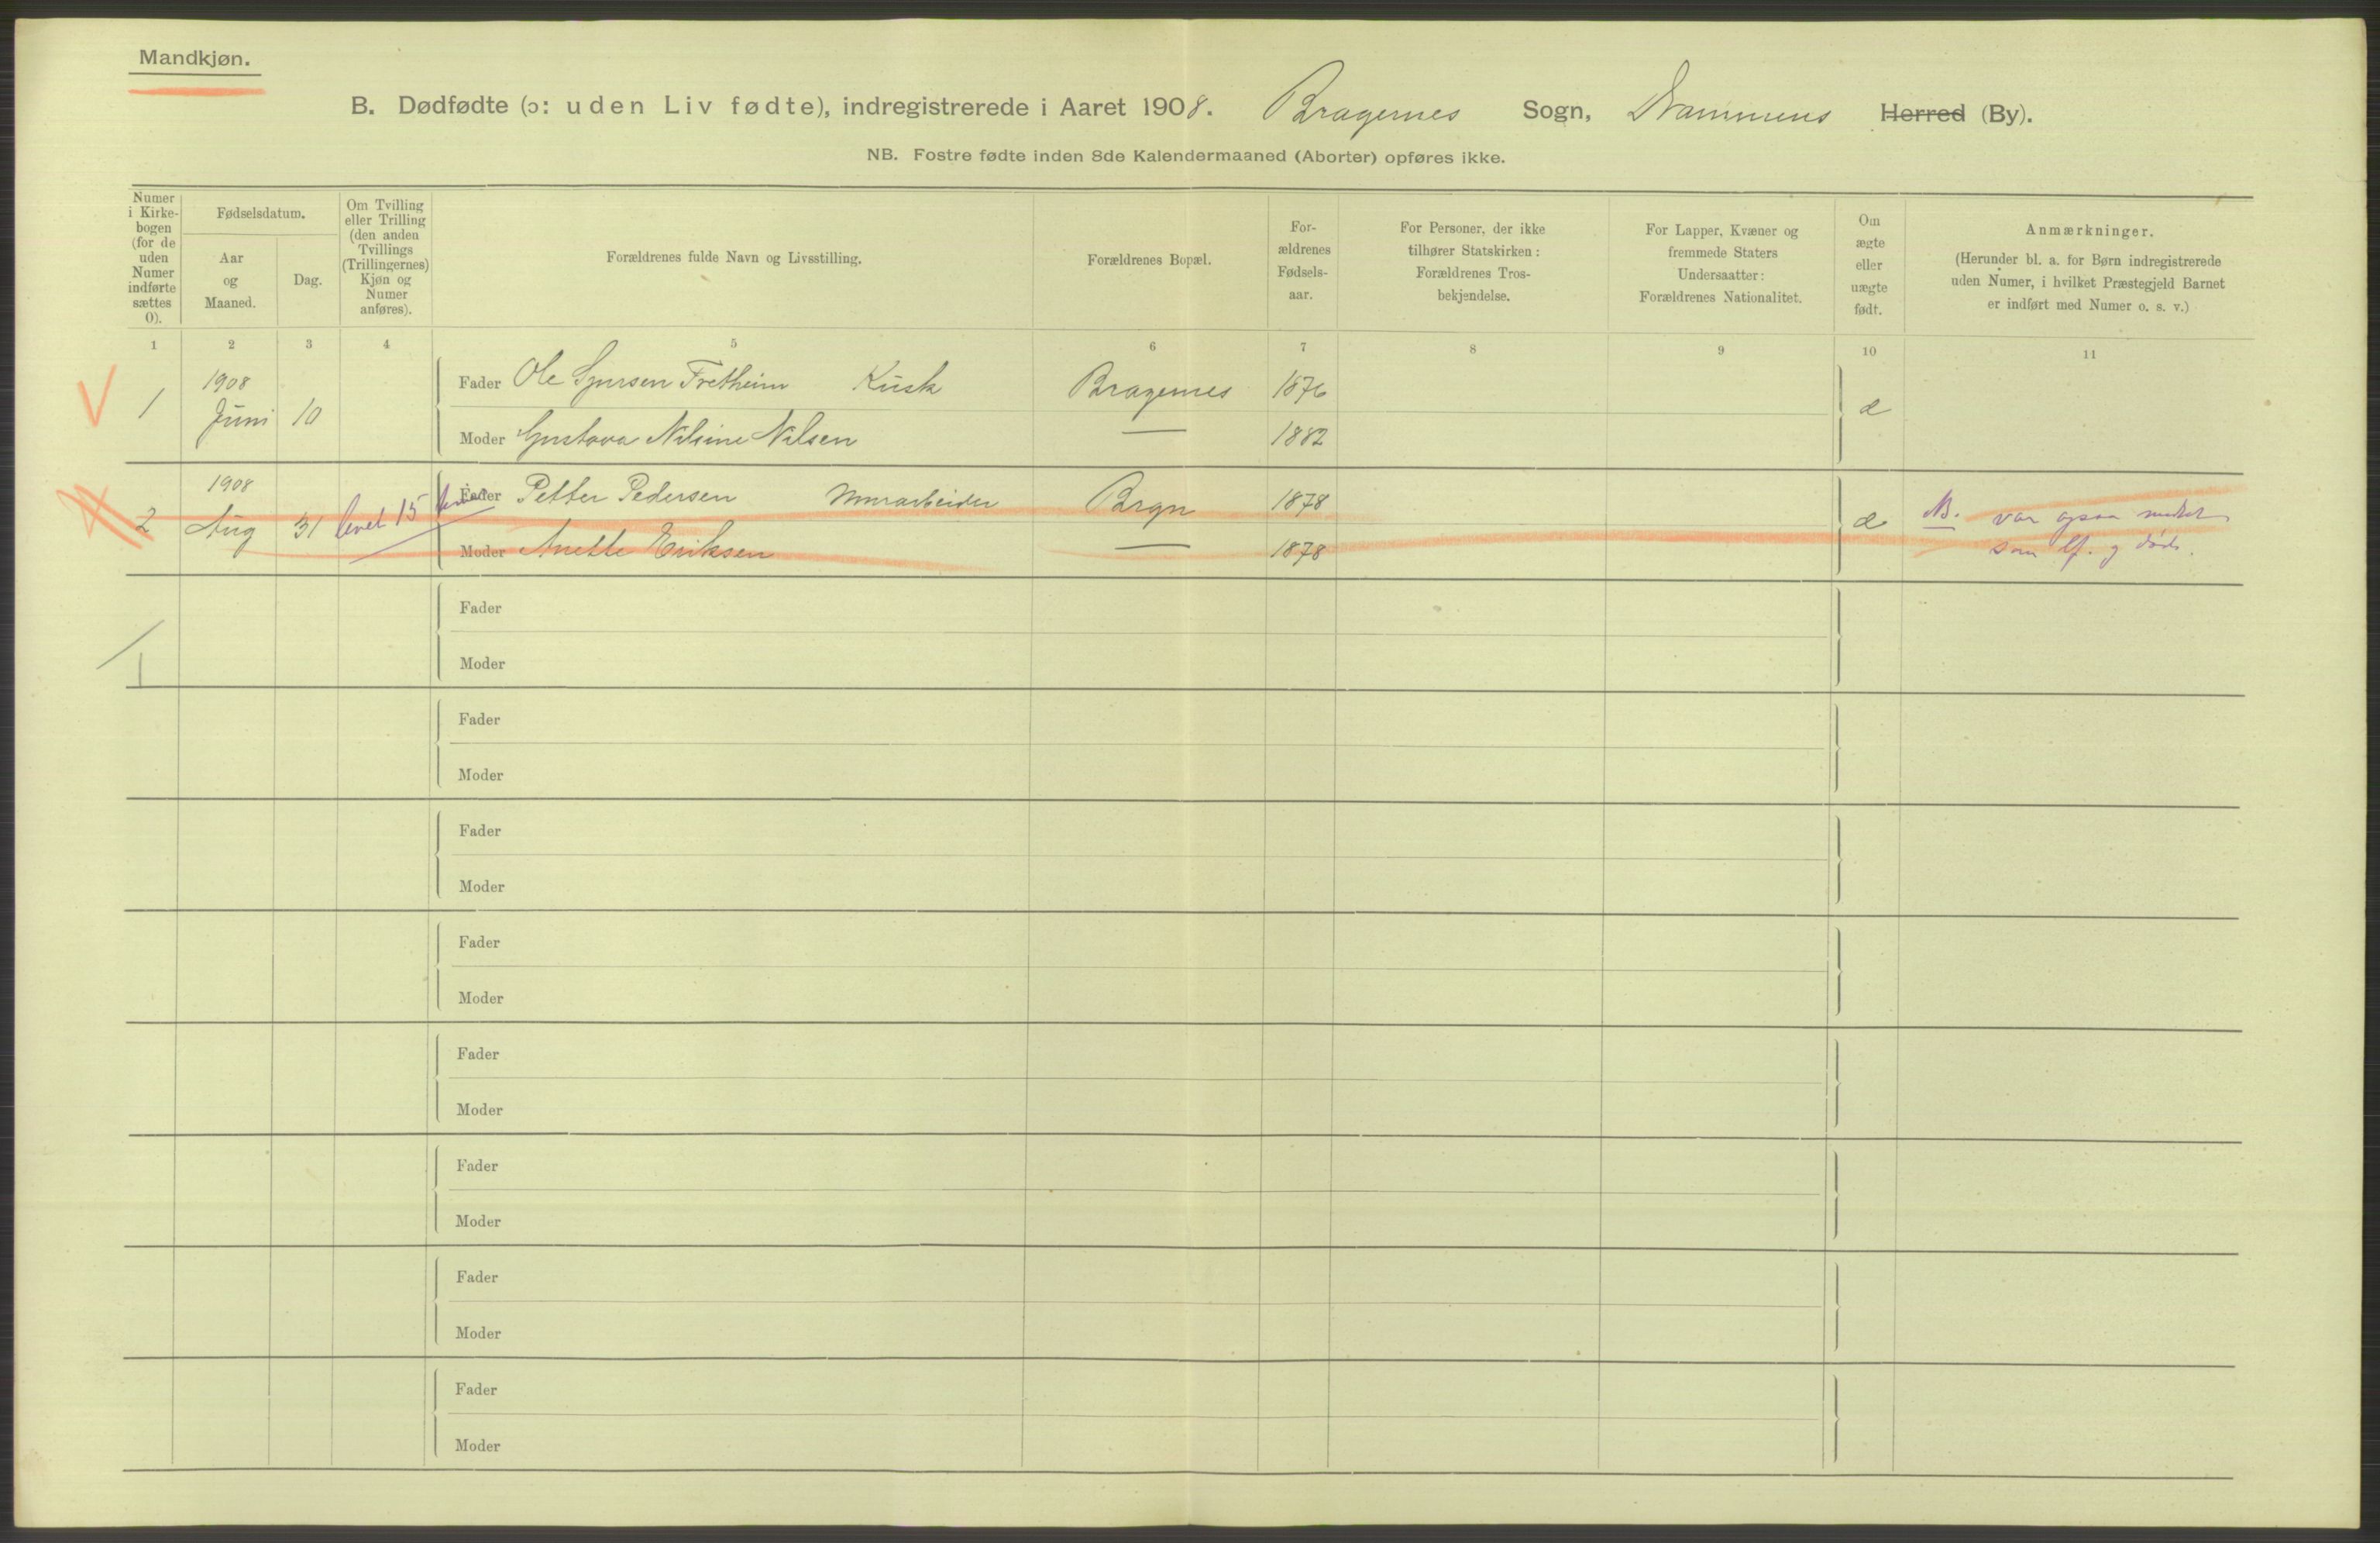 Mandkjøn.
B. Dødfødte (ɔ: uden Liv fødte), indregistrerede i Aaret 1908. Bragernes Sogn, Drammens Herred (By).
NB. Fostre fødte inden 8de Kalendermaaned (Aborter) opføres ikke.
Numer
i Kirke-
bogen
(for de
uden
Numer
indførte
sættes
0).
Fødselsdatum.
Aar
og
Maaned.
Dag.
Om Tvilling
eller Trilling
(den anden
Tvillings
(Trillingernes)
Kjøn og
Numer
anføres).
Forældrenes fulde Navn og Livsstilling.
Forældrenes Bopæl.
For-
ældrenes
Fødsels-
aar.
For Personer, der ikke
tilhører Statskirken:
Forældrenes Tros-
bekjendelse.
For Lapper, Kvæner og
fremmede Staters
Undersaatter:
Forældrenes Nationalitet.
Om
ægte
eller
uægte
født.
Anmærkninger.
(Herunder bl. a. for Børn indregistrerede
uden Numer, i hvilket Præstegjeld Barnet
er indført med Numer o. s. v.)
1 2 3 4 5 6 7 8 9 10 11
1908
1 Juni 10
Fader Ole Syversen Fretheim Kusk Bragernes 1876
Moder Gustava Nilsine Nilsen — 1882
æ
1908
2 Aug 31 levet 15
Fader Petter Pedersen Murarbeider Brgn 1878
Moder Anette Eriksen — 1878
æ
NB. var ogsaa meldt
som lf. og død.
Fader
Moder
1
Fader
Moder
Fader
Moder
Fader
Moder
Fader
Moder
Fader
Moder
Fader
Moder
Fader
Moder